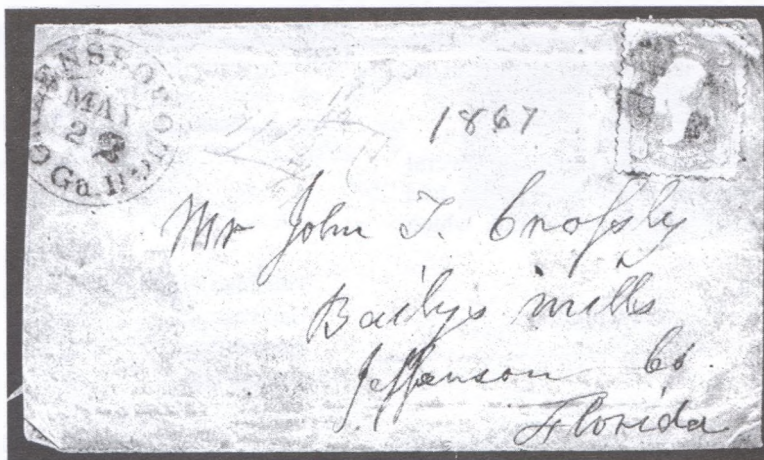 ENSBOROUG
MAY
2
Ga.
1867
Mr John T. Crossly
Bailys mills
Jefferson Co.
Florida